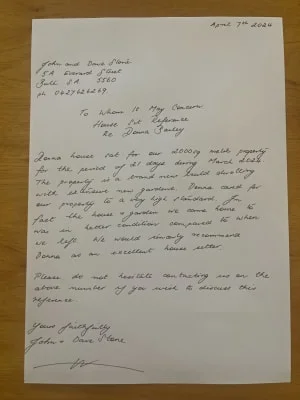 April 7th 2024
John and Dave Stone
5A Everard Street
Bute S.A.
5560
ph 0427626269
To Whom It May Concern
House Sit Reference
Re Donna Bailey
Donna house sat for our 2000sq metre property
for the period of 21 days during March 2024
The property is a brand new build dwelling
with extensive new gardens. Donna cared for
our property to a very high standard. In
fact the house & garden we came home to
was in better condition compared to when
we left. We would sincerely recommend
Donna as an excellent house sitter.
Please do not hesitate contacting us on the
above number if you wish to discuss this
reference.
Yours faithfully
John & Dave Stone